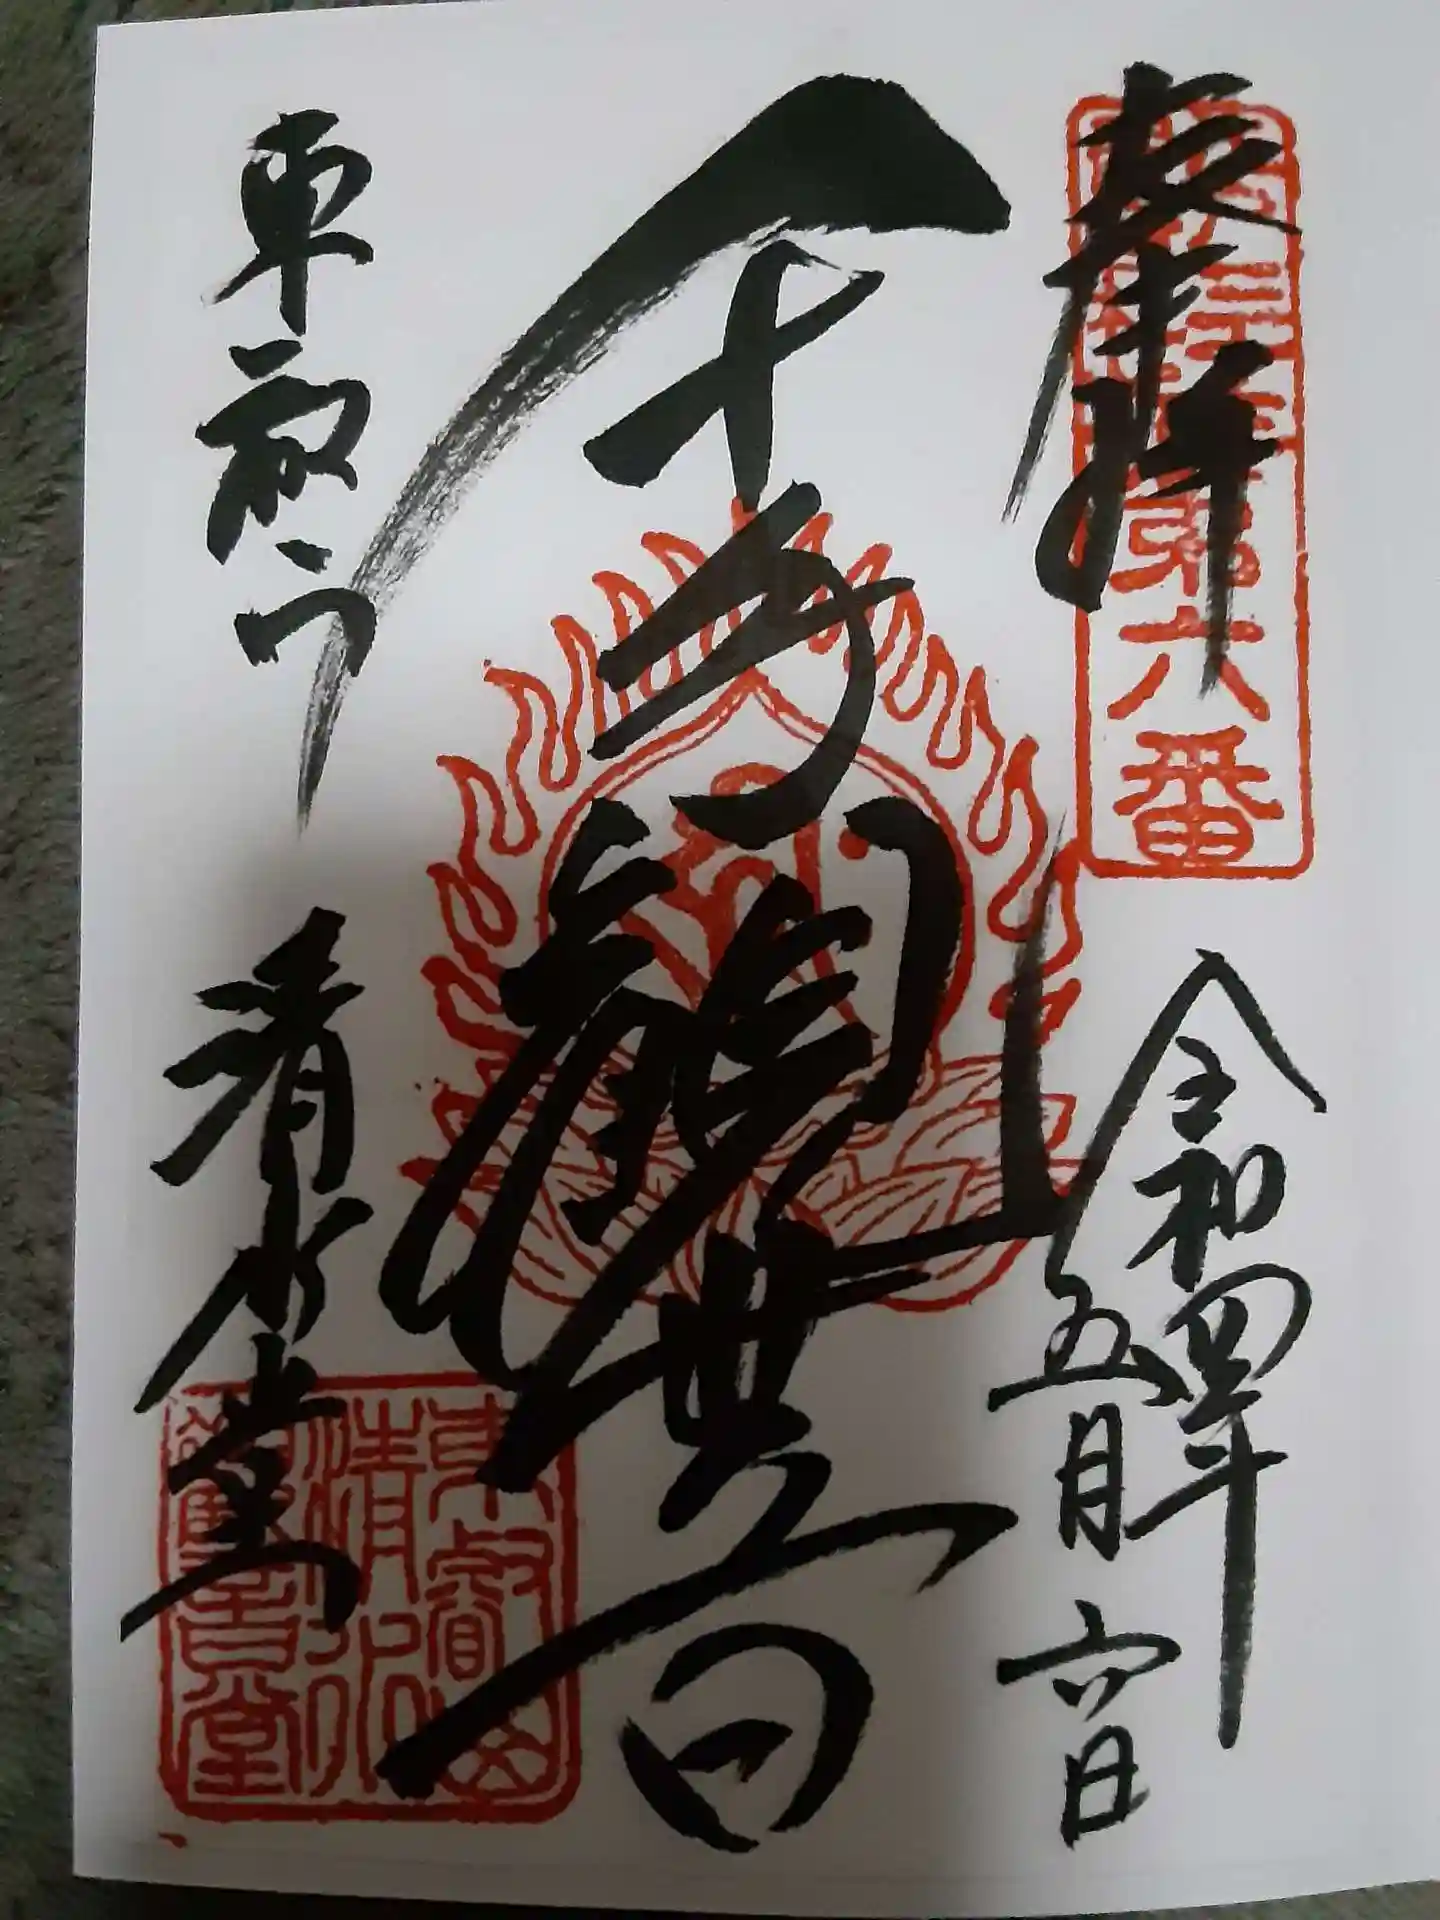 奉拝
第六番
令和四年
五月六日
千手観世音
東叡山
清水堂
東叡山
清水
観音堂